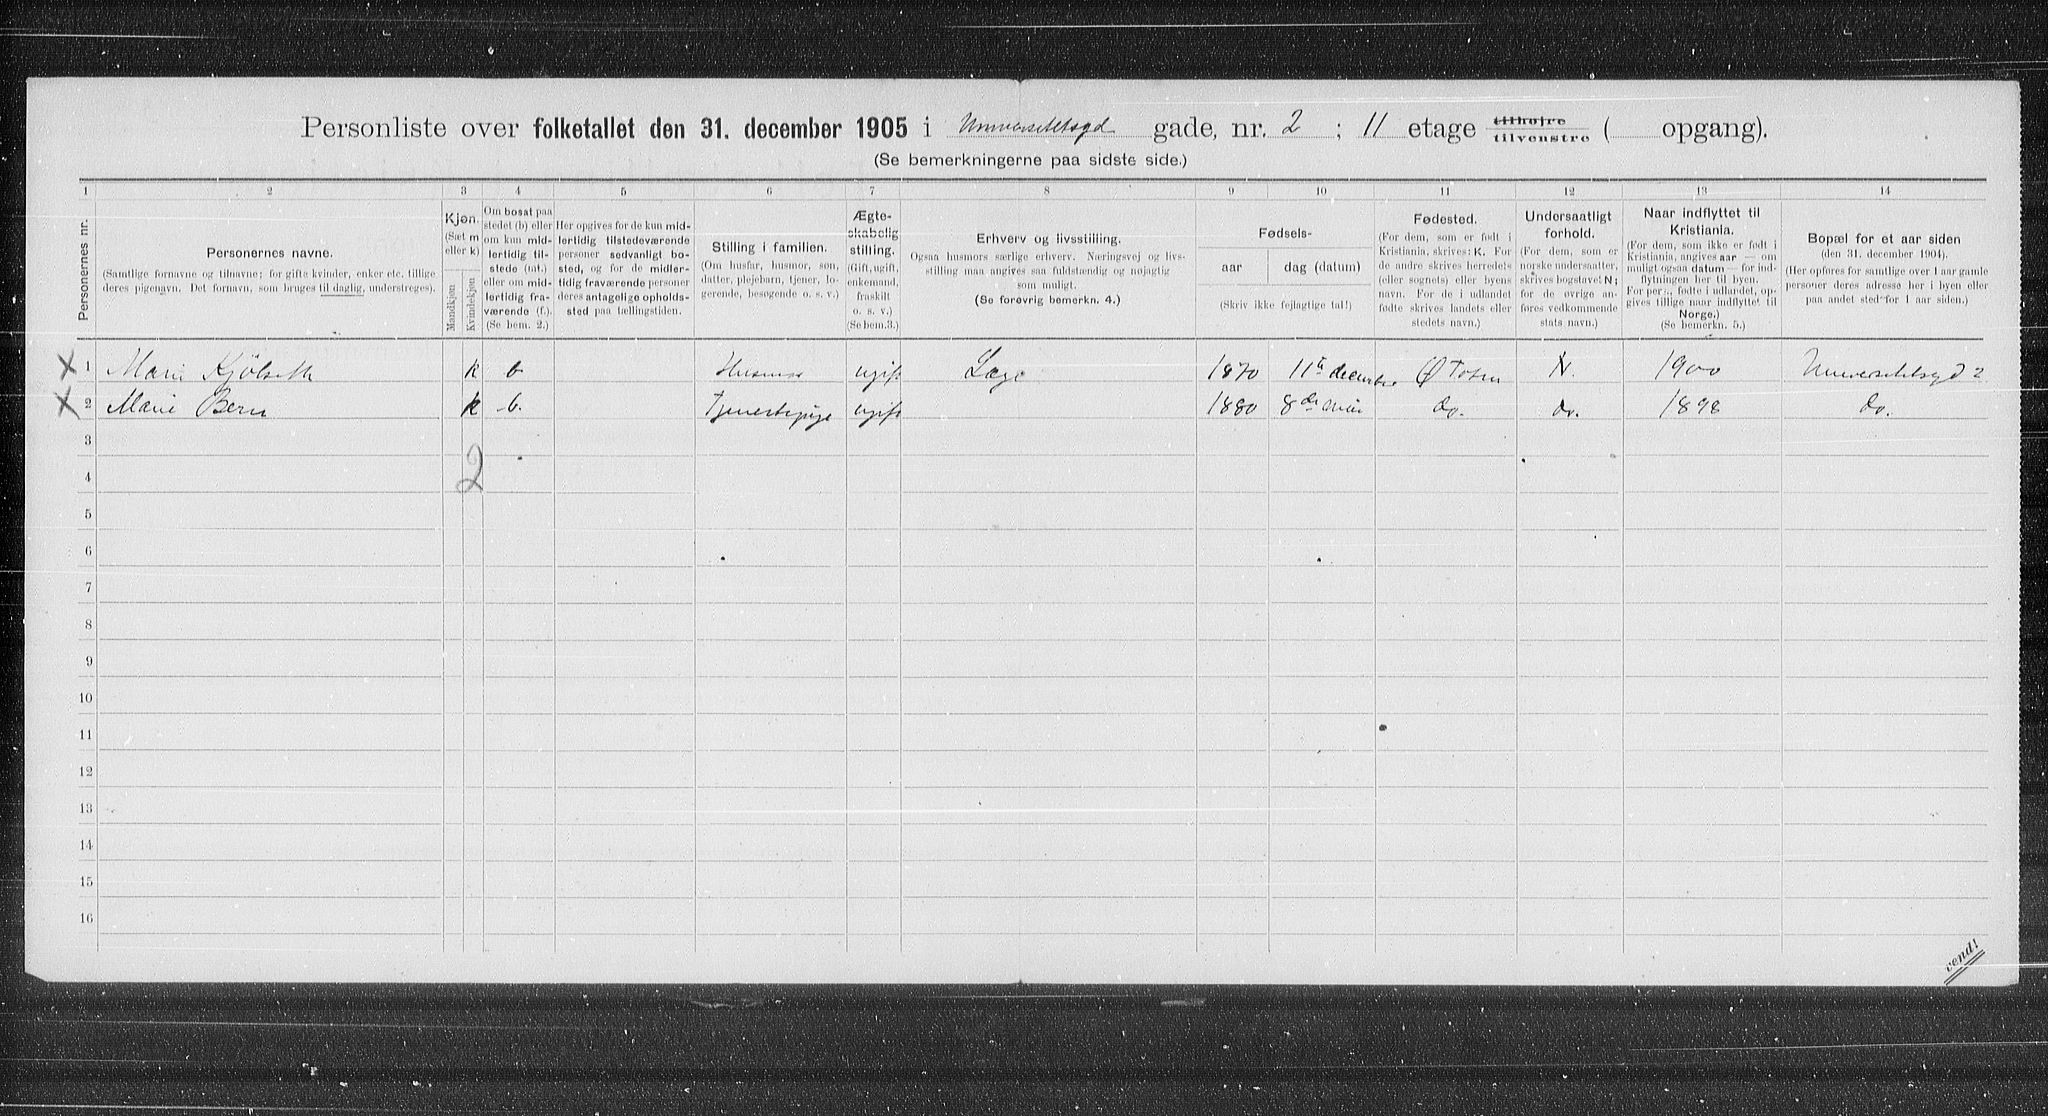 Personliste over folketallet den 31. december 1905 i Universitetsgd gade, nr. 2 ; 11 etage tilhøjre tilvenstre ( opgang).
(Se bemerkningerne paa sidste side.)
1 2 3 4 5 6 7 8 9 10 11 12 13 14
Personernes nr.
Personernes navne.
(Samtlige fornavne og tilnavne; for gifte kvinder, enker etc. tillige
deres pigenavn. Det fornavn, som bruges til daglig, understreges).
Kjøn.
(Sæt m
eller k)
Mandkjøn
Kvindekjøn
Om bosat paa
stedet (b) eller
om kun mid-
lertidig til-
stede (mt.)
eller om mid-
lertidig fra-
værende (f.).
(Se bem. 2.)
Her opgives for de kun mid-
lertidig tilstedeværende
personer sedvanligt bo-
sted, og for de midler-
tidig fraværende personer
deres antagelige opholds-
sted paa tællingstiden.
Stilling i familien.
(Om husfar, husmor, søn,
datter, plejebarn, tjener, lo-
gerende, besøgende o. s. v.)
Ægte-
skabelig
stilling.
(Gift, ugift,
enkemand,
fraskilt
o. s. v.)
(Se bem.3.)
Erhverv og livsstilling.
Ogsaa husmors særlige erhverv. Næringsvej og livs-
stilling maa angives saa fuldstændig og nøjagtig
som muligt.
(Se forøvrig bemerkn. 4.)
Fødsels-
aar
dag (datum)
(Skriv ikke fejlagtige tal!)
Fødested.
(For dem, som er født i
Kristiania, skrives: K. For
de andre skrives herredets
(eller sognets) eller byens
navn. For de i udlandet
fødte skrives landets eller
stedets navn.)
Undersaatligt
forhold.
(For dem, som er
norske undersaatter,
skrives bogstavet N;
for de øvrige an-
føres vedkommende
stats navn.)
Naar indflyttet til
Kristiania.
(For dem, som ikke er født i
Kristiania, angives aar — om
muligt ogsaa datum — for ind-
flytningen her til byen.
For per:., fødte i udlandet, op-
gives tillige naar indflyttet til
Norge.)
(Se bemerkn. 5.)
Bopæl for et aar siden
(den 31. december 1904).
(Her opføres for samtlige over 1 aar gamle
personer deres adresse her i byen eller
paa andet sted for 1 aar siden.)
X 1 Marie Kjölseth k b Husmor ugift Læge 1870 11te december Ø Toten N. 1900 Universitetsgd 2
X 2 Marie Bern k b. Tjenestepige ugift 1880 8de mai do. do. 1898 do.
3
2
4
5
6
7
8
9
10
11
12
13
14
15
16
vend!